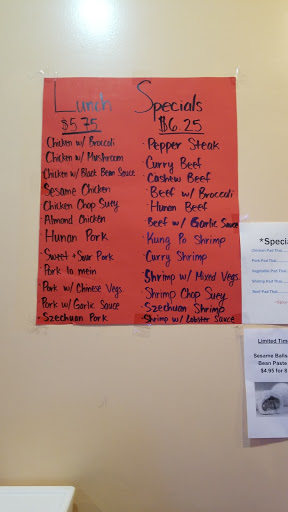 Lunch Specials
$5.75
Chicken w/ Broccoli
Chicken w/ Mushroom
Chicken w/ Black Bean Sauce
Sesame Chicken
Chicken Chop Suey
Almond Chicken
Hunan Pork
Sweet + Sour Pork
Pork lo mein
Pork w/ Chinese Vegs.
Pork w/ Garlic Sauce
Szechuan Pork
$6.25
Pepper Steak
Curry Beef
Cashew Beef
Beef w/ Broccoli
Hunan Beef
Beef w/ Garlic Sauce
Kung Po Shrimp
Curry Shrimp
Shrimp w/ Mixed Vegs
Shrimp Chop Suey
Szechuan Shrimp
Shrimp w/ Lobster Sauce
*Specia
Limited Tim
Sesame Balls
Bean Paste
$4.95 for 8